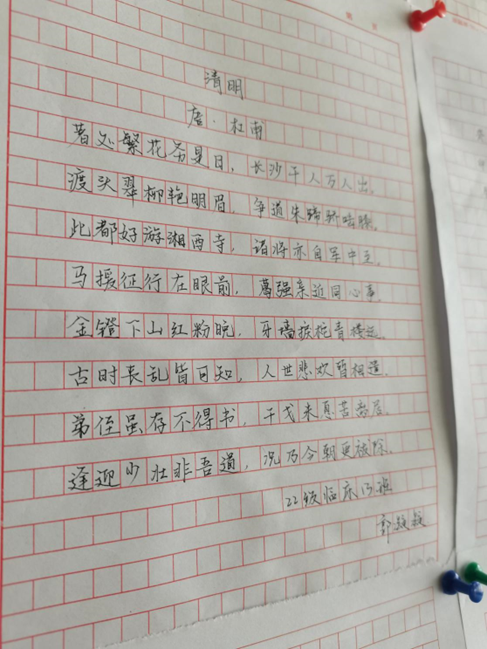 清明
唐·杜甫
著处繁花务是日，长沙千人万人出。
渡头翠柳艳明眉，争道朱蹄骄啮膝。
此都好游湘西寺，诸将亦自军中至。
马援征行在眼前，葛强亲近同心事。
金镫下山红粉晚，牙樯捩柁青楼远。
古时丧乱皆可知，人世悲欢暂相遣。
弟侄虽存不得书，干戈未息苦离居。
逢迎少壮非吾道，况乃今朝更祓除。
22级临床13班